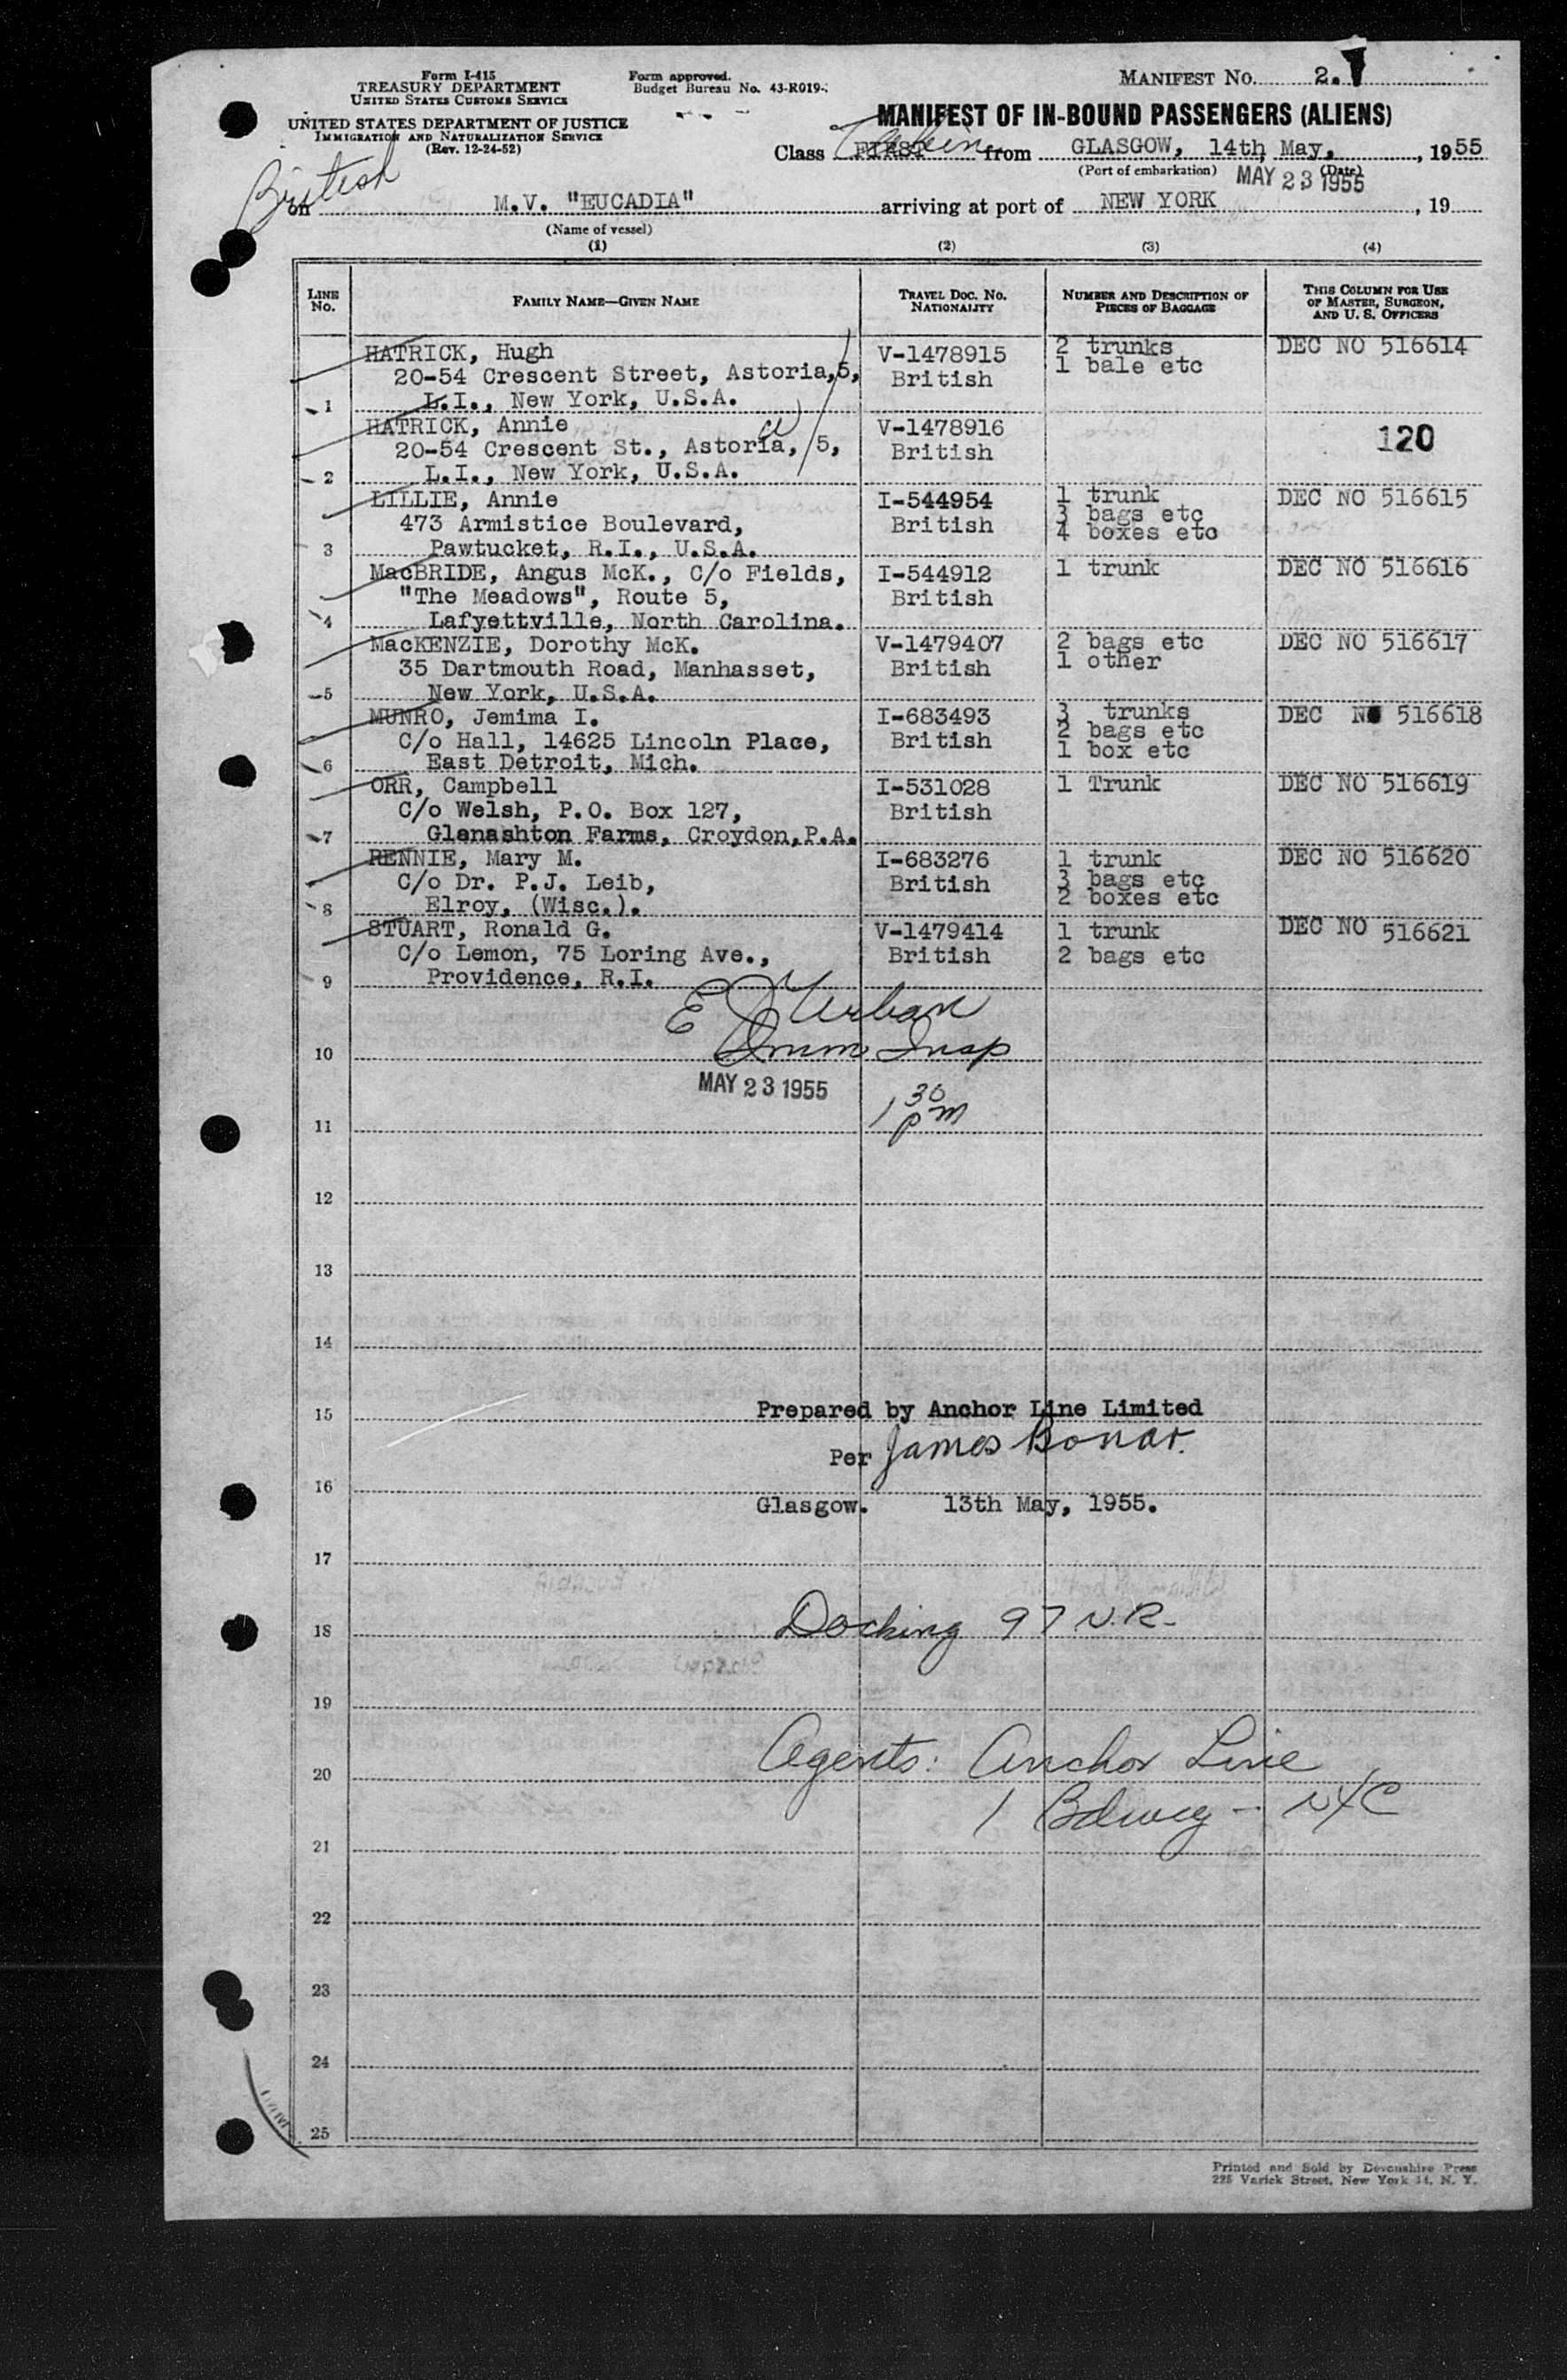 Form I-415
TREASURY DEPARTMENT
UNITED STATES CUSTOMS SERVICE
UNITED STATES DEPARTMENT OF JUSTICE
IMMIGRATION AND NATURALIZATION SERVICE
(Rev. 12-24-52)
Form approved.
Budget Bureau No. 43-R019-
MANIFEST NO. 2.
MANIFEST OF IN-BOUND PASSENGERS (ALIENS)
Class FIRST from GLASGOW, 14th May, , 1955
(Port of embarkation) (Date)
MAY 23 1955
British
on M.V. "EUCADIA" arriving at port of NEW YORK , 19
(Name of vessel)
(1) (2) (3) (4)
LINE NO. FAMILY NAME—GIVEN NAME TRAVEL DOC. NO. NATIONALITY NUMBER AND DESCRIPTION OF PIECES OF BAGGAGE THIS COLUMN FOR USE OF MASTER, SURGEON, AND U. S. OFFICERS
HATRICK, Hugh V-1478915 2 trunks DEC NO 516614
20-54 Crescent Street, Astoria,5, British 1 bale etc
1 L.I., New York, U.S.A.
HATRICK, Annie V-1478916 120
20-54 Crescent St., Astoria, 5, British
2 L.I., New York, U.S.A.
LILLIE, Annie I-544954 1 trunk DEC NO 516615
473 Armistice Boulevard, British 3 bags etc
3 Pawtucket, R.I., U.S.A. 4 boxes etc
MacBRIDE, Angus McK., C/o Fields, I-544912 1 trunk DEC NO 516616
"The Meadows", Route 5, British
4 Lafyettville, North Carolina.
MacKENZIE, Dorothy McK. V-1479407 2 bags etc DEC NO 516617
35 Dartmouth Road, Manhasset, British 1 other
5 New York, U.S.A.
MUNRO, Jemima I. I-683493 3 trunks DEC NO 516618
C/o Hall, 14625 Lincoln Place, British 2 bags etc
6 East Detroit, Mich. 1 box etc
ORR, Campbell I-531028 1 Trunk DEC NO 516619
C/o Welsh, P.O. Box 127, British
7 Glenashton Farms, Croydon,P.A.
RENNIE, Mary M. I-683276 1 trunk DEC NO 516620
C/o Dr. P.J. Leib, British 3 bags etc
8 Elroy, (Wisc.). 2 boxes etc
STUART, Ronald G. V-1479414 1 trunk DEC NO 516621
C/o Lemon, 75 Loring Ave., British 2 bags etc
9 Providence, R.I.
E J Urban
10 Imm Insp
MAY 23 1955 1 30 pm
11
12
13
14
15 Prepared by Anchor Line Limited
Per James Bonar.
16
Glasgow. 13th May, 1955.
17
18 Docking 97 N.R.
19
20 Agents: Anchor Line
1 Bdway - NYC
21
22
23
24
25
Printed and Sold by Devonshire Press
225 Varick Street, New York 14, N. Y.